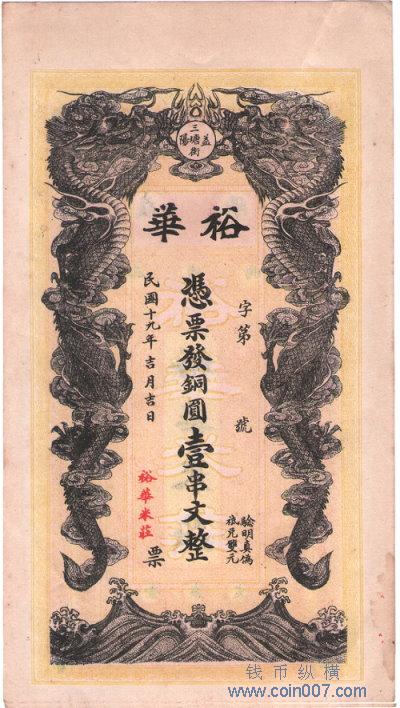 益陽
三塘街
裕華
字第 號
驗明真偽
雙元
憑票發銅圓壹串文整
民國十九年吉月吉日
裕華米莊 票
钱币纵横
www.coin007.com